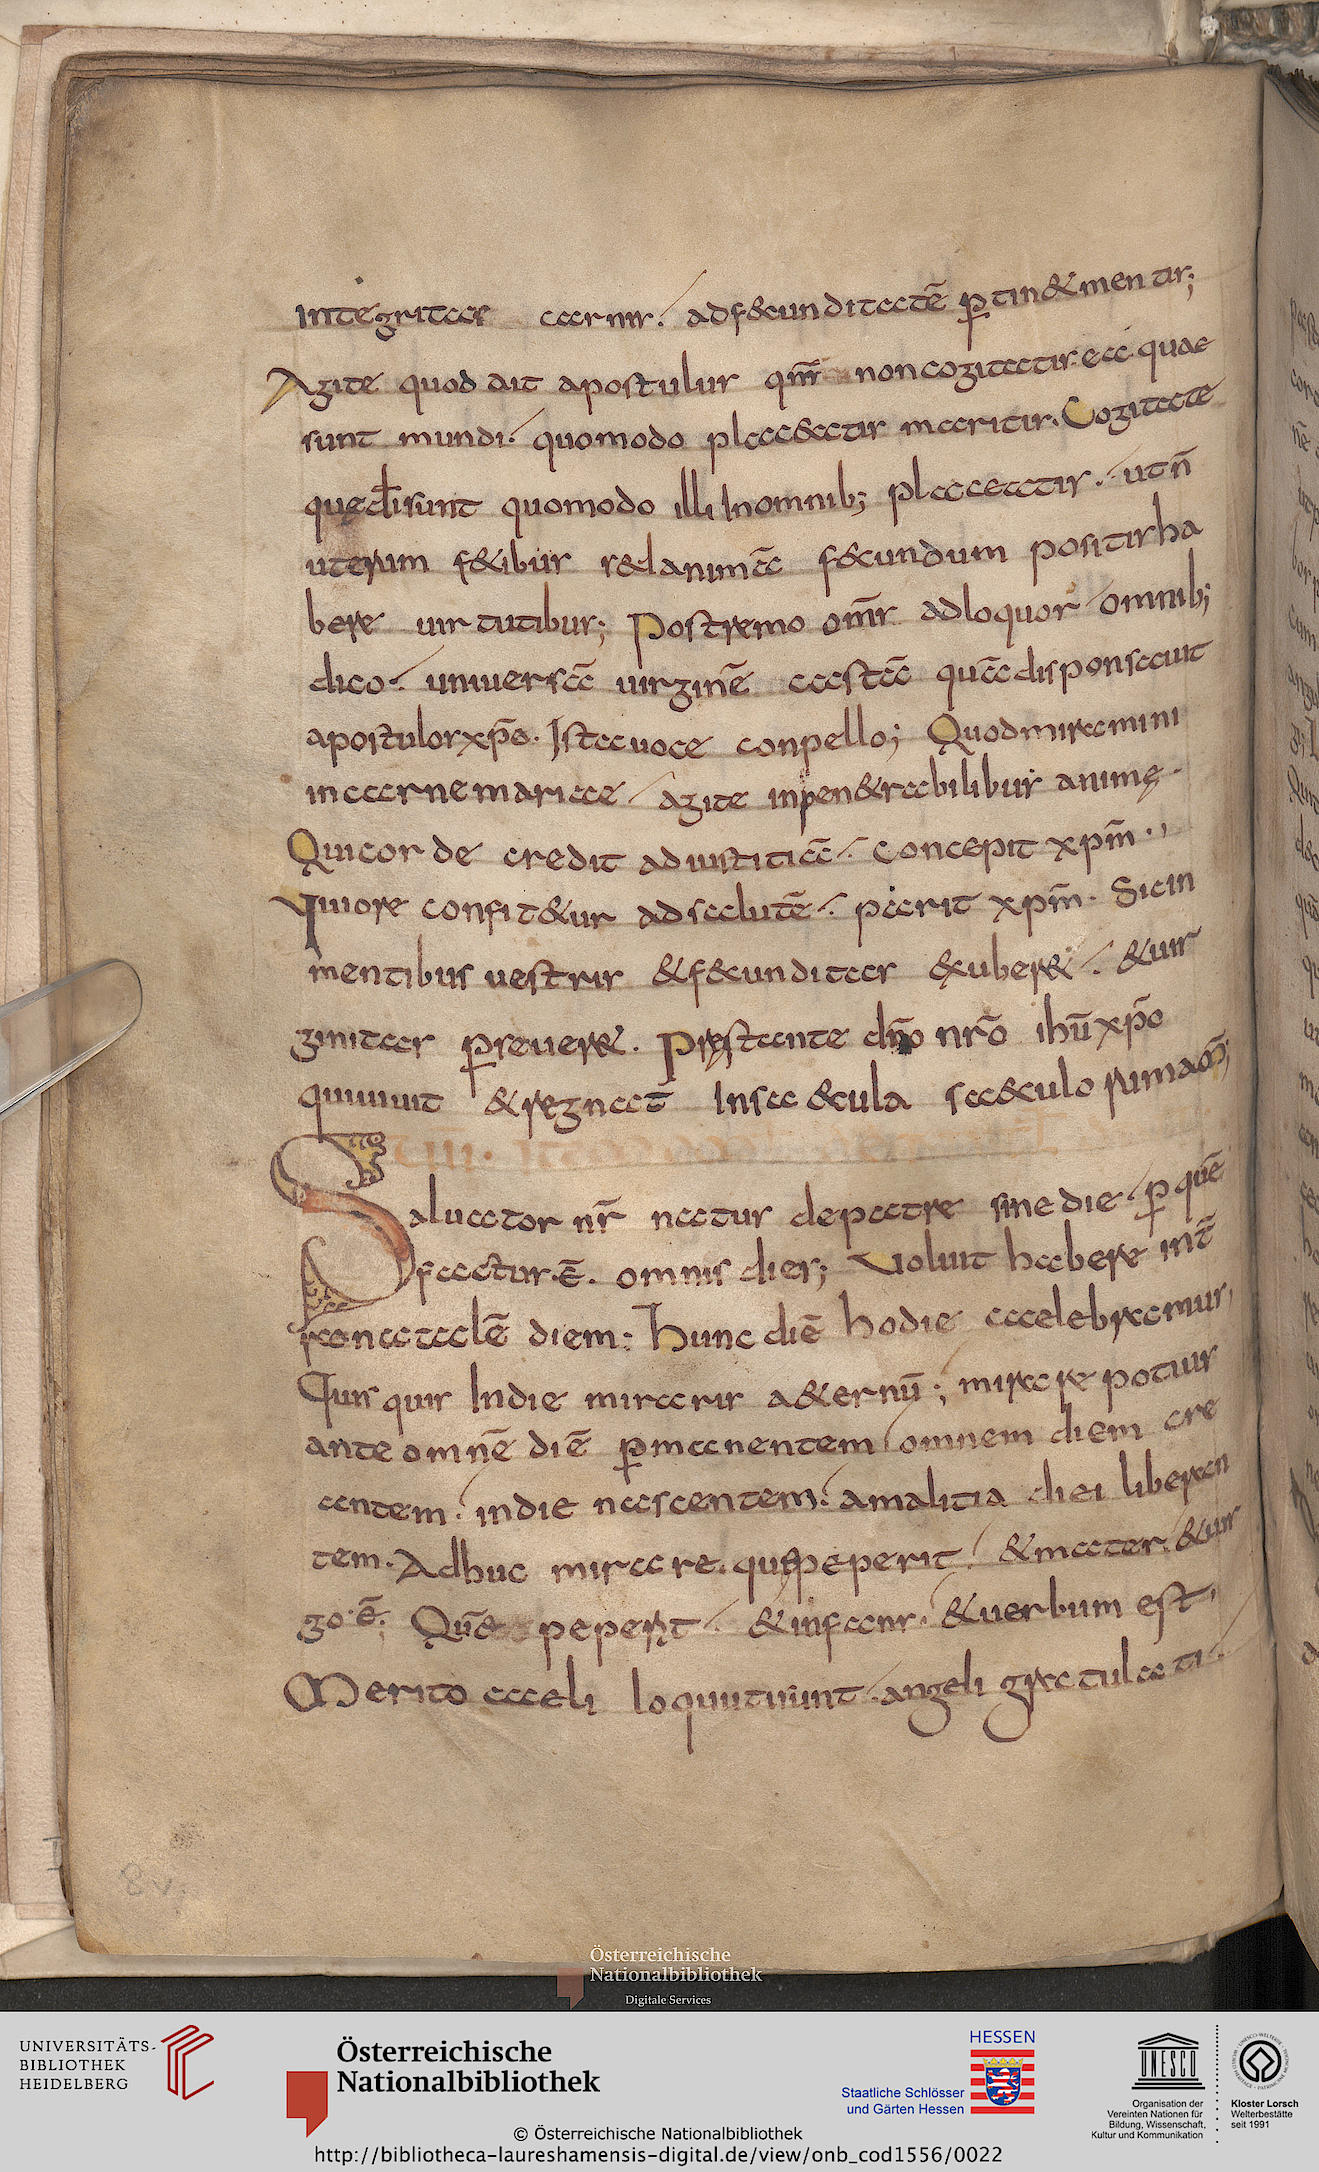 integritas carnis. ad f&cunditatē ꝑtin& mentis;
Agite quod ait apostulus qm̄ non cogitatis ea quae
sunt mundi. quomodo plac&atis maritis. Cogitate
quę dī sunt quomodo illi In omnib; placeatis. ut n̄
uterum f&ibus sed animā f&cundum possitis ha
bere uirtutibus; Postremo om̄s adloquor omnib;
dico. uniuersā uirginē castā quā disponsauit
apostulos xp̄o. Ista uoce conpello; Quod miramini
in carne mariae agite in pen&rabilibus animę.
Qui corde credit ad iustitiā. concepit xpm̄.
Qui ore confit&ur ad salutē. parit xpm̄. Sic in
mentibus uestris & f&cunditas exuber& . & uir
ginitas perseuer&. Pręstante dn̄o nr̄o ihū xp̄o
qui uiuit & regnat In sae&cula sae&culorum am̄;
Saluator nr̄ natus de patre sine die ꝑ quē
factus ē. omnis dies; Uoluit habere in t̄
ra natalē diem: hunc diē hodie caelebramus,
Quis quis In die miraris a&ernū; mirare potius
ante omnē diē ꝑmanentem omnem diem cre
antem. in die nascentem. a malitia diei liberan
tem. Adhuc mirare. quę peperit. & mater. & uir
go ē; Quē peperit. & infans. & uerbum est.
Merito caeli loquuti sunt. angeli gratulati.
8v
Österreichische
Nationalbibliothek
Digitale Services
UNIVERSITÄTS-
BIBLIOTHEK
HEIDELBERG
Österreichische
Nationalbibliothek
HESSEN
Staatliche Schlösser
und Gärten Hessen
UNESCO
Organisation der
Vereinten Nationen für
Bildung, Wissenschaft,
Kultur und Kommunikation
Kloster Lorsch
Welterbestätte
seit 1991
© Österreichische Nationalbibliothek
http://bibliotheca-laureshamensis-digital.de/view/onb_cod1556/0022